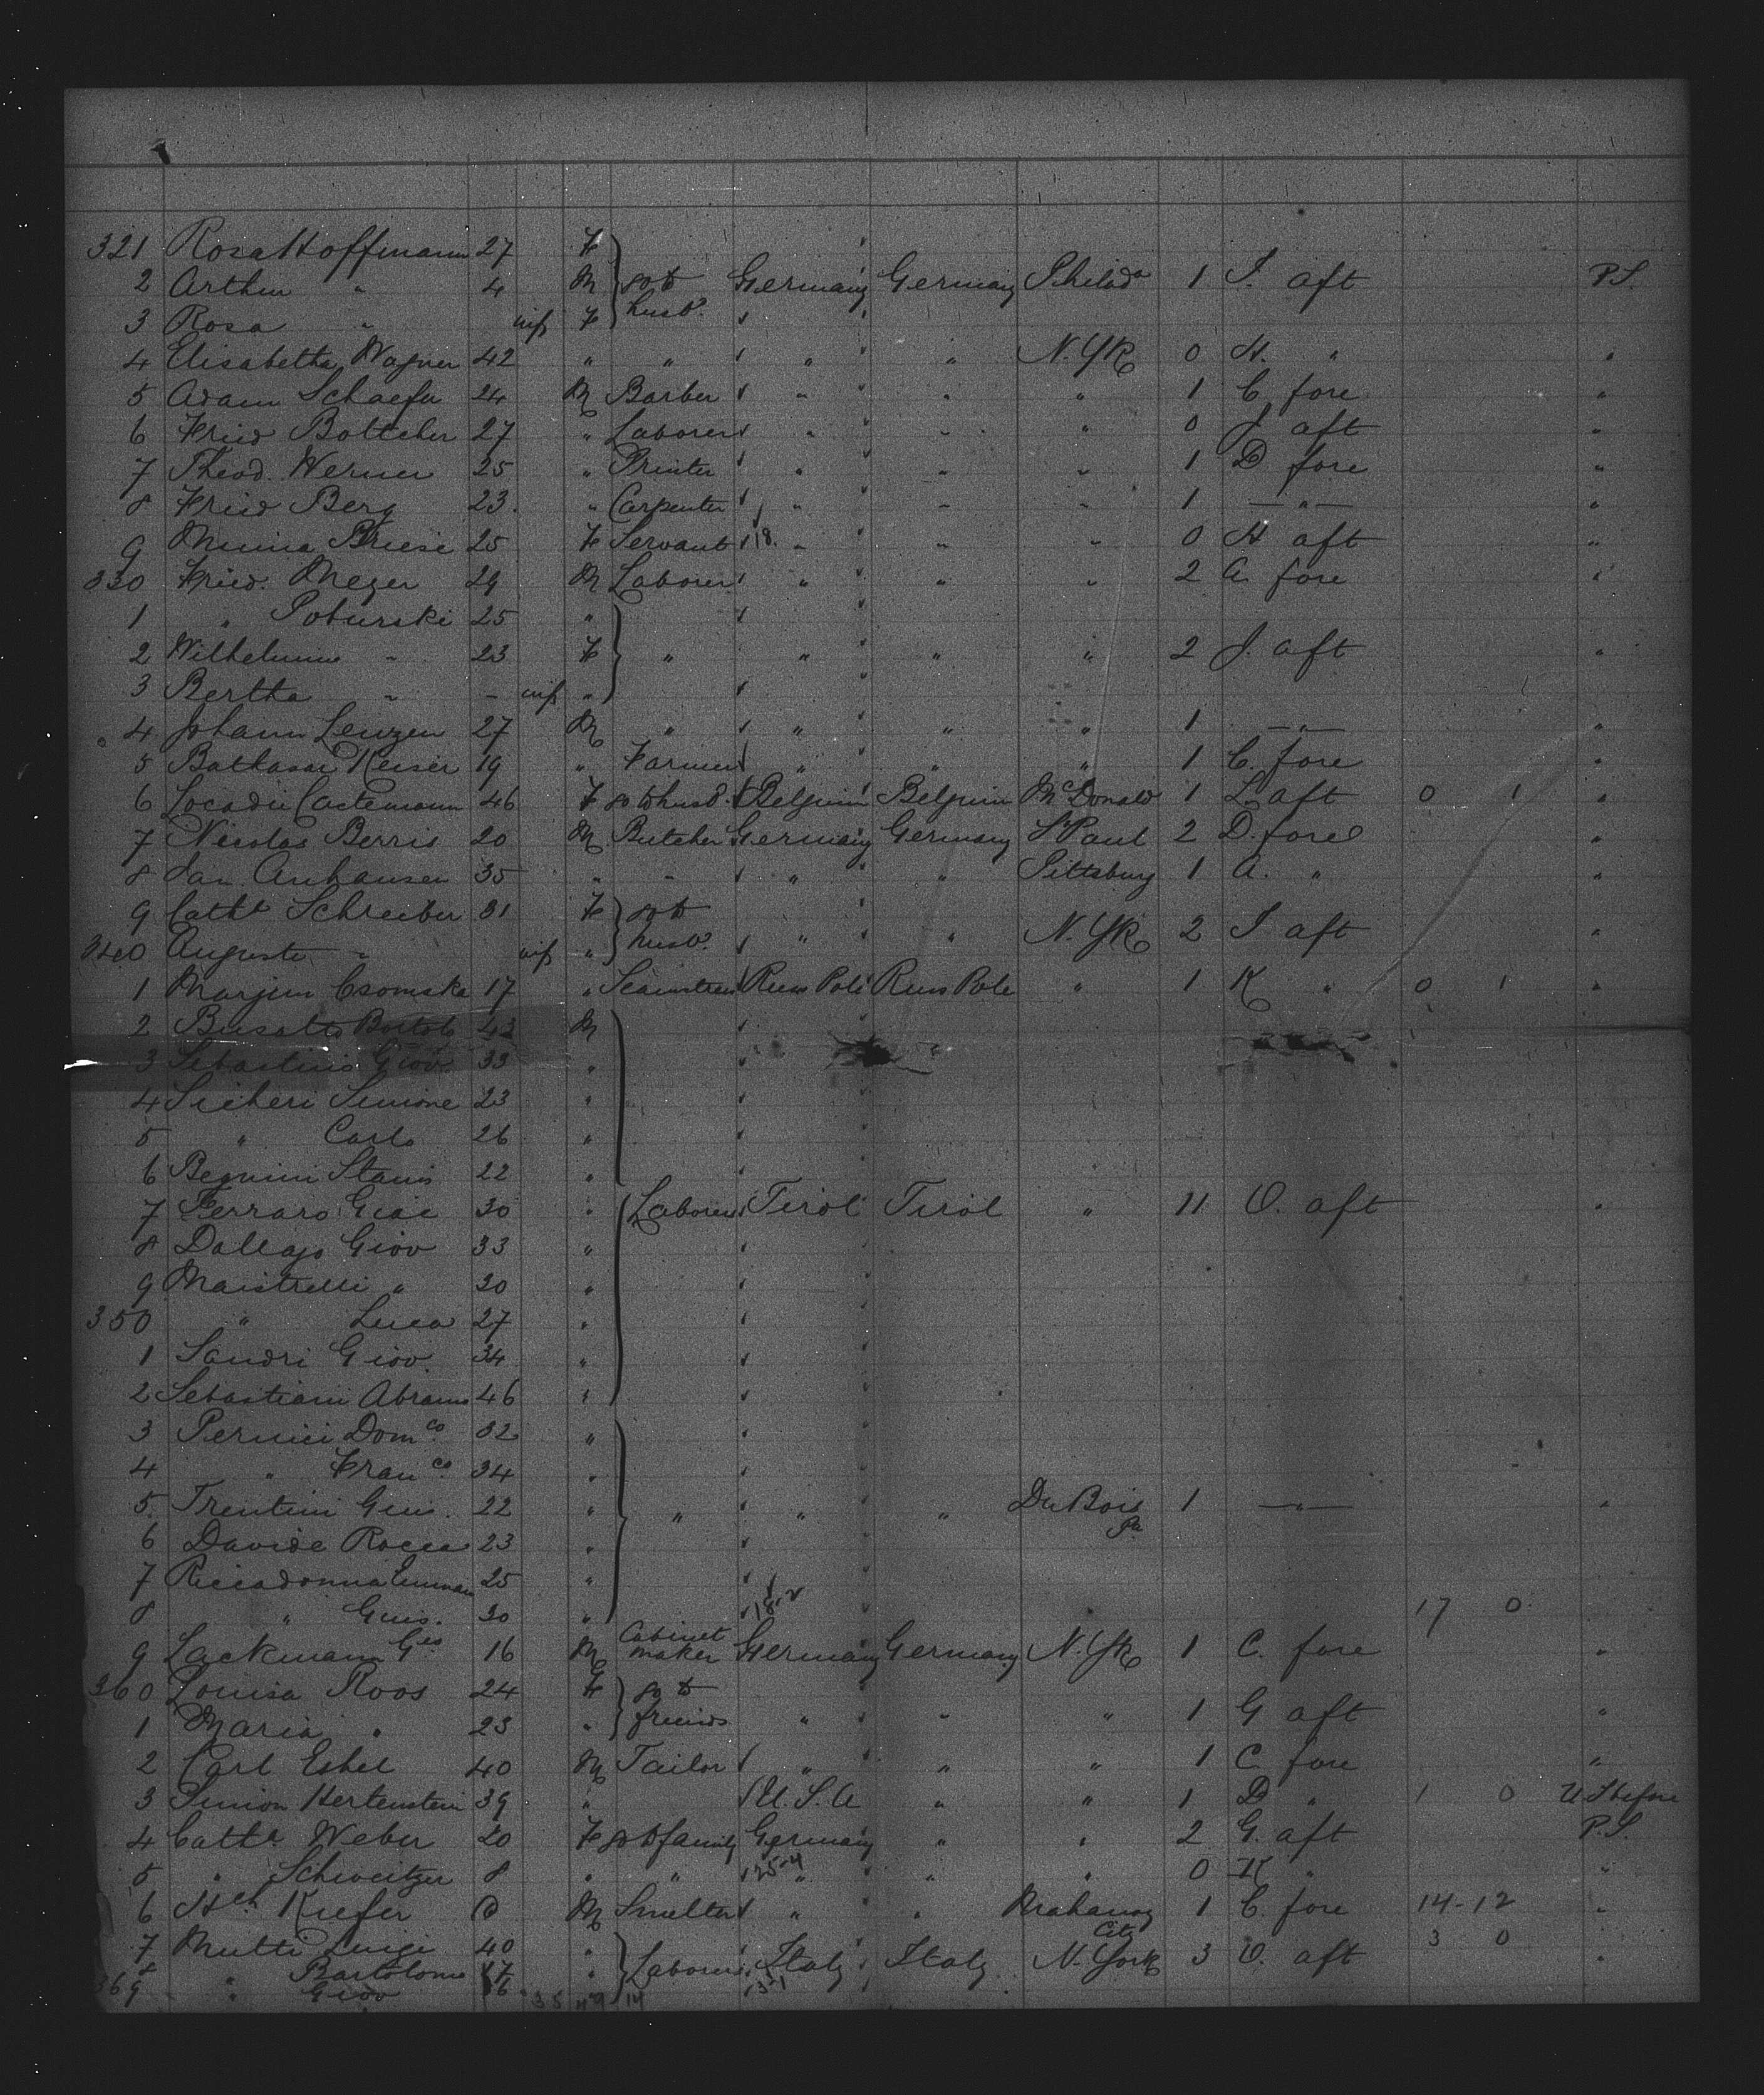 321 Rosa Hoffmann 27 F
2 Arthur " 4 M go to Germany Germany Philada 1 I. aft P.S.
3 Rosa " inf F husb.
4 Elisabetha Wagner 42 " " " " N. Yk 0 H. " "
5 Adam Schaefer 24 M Barber " " " 1 C. fore "
6 Fried Bottcher 27 " Laborer " " " 0 J aft "
7 Theod. Werner 25 " Printer " " " 1 D fore "
8 Fried Berg 23 " Carpenter " " " 1 —"— "
9 Minna Briese 25 F Servant " " " 0 H aft "
330 Fried. Meyer 29 M Laborer " " " 2 A fore "
1 " Poburski 25 "
2 Wilhelmine " 23 F " " " " 2 J. aft "
3 Bertha " - inf "
4 Johann Lenzen 27 M " " " " 1 —"— "
5 Balthasar Keiser 19 " Farmer " " " 1 C. fore "
6 Locadie 46 F go to husb. Belgium Belgium McDonald 1 L. aft 0 1 "
7 Nicolas Berris 20 M Butcher Germany Germany St Paul 2 D. fore "
8 Jan. Anhauser 35 " " " " Pittsburg 1 A. " "
9 Cathe Schreiber 31 F go to
340 Auguste " inf " husb. " " N. Yk 2 I aft "
1 Marjem Csomska 17 " Seamstress Russ Pole Russ Pole " 1 K " 0 1 "
2 Busalto Bortolo 43 M
3 Sebastino Giov. 33 "
4 Sicheri Simone 23 "
5 " Carlo 26 "
6 Begnini Stanis 22 "
7 Ferraro Giac 30 " Laborers Tirol Tirol " 11 O. aft "
8 Dallago Giov 33 "
9 Maistrelli " 30 "
350 " Luca 27 "
1 Sandri Giov. 34 "
2 Sebastiani Abramo 46 "
3 Pernici Domco 32 "
4 " Franco 34 "
5 Trentini Gius. 22 " " " " Du Bois Pa 1 —"— "
6 Davide Rocca 23 "
7 Riccadonna Emman 25 "
8 " Gius. 30 " 18 17 0
9 Lackmann Geo 16 M Cabinet maker Germany Germany N. Yk 1 C. fore "
360 Louisa Roos 24 F go to
1 Maria " 23 " friends " " " 1 G aft "
2 Carl Eshel 40 M Tailor " " " 1 C fore "
3 Simon Hertenstein 39 " U.S.A " " 1 D " 1 0 US before
4 Cathe Weber 20 F go to family Germany " " 2 G. aft P.S.
5 " Schweitzer 8 " " " " " 0 K " "
6 Hch Kiefer M Smelter " " Mahanoy City 1 C. fore 14-12 "
7 Mutti Luigi 40 " 3 0
8 " Bartolomo 17 " Laborers Italy Italy N. York 3 O. aft "
369 " Giov 16